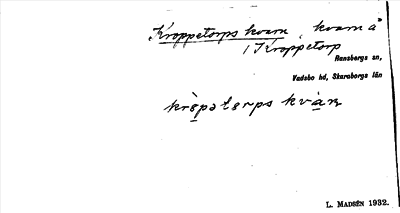 Kroppetorps kvarn, kvarn å
/ Kroppetorp
Ransbergs sn,
Vadsbo hd, Skaraborgs län
krɔ̀pətɔrps kvàɳ
L. MADSÉN 1932.